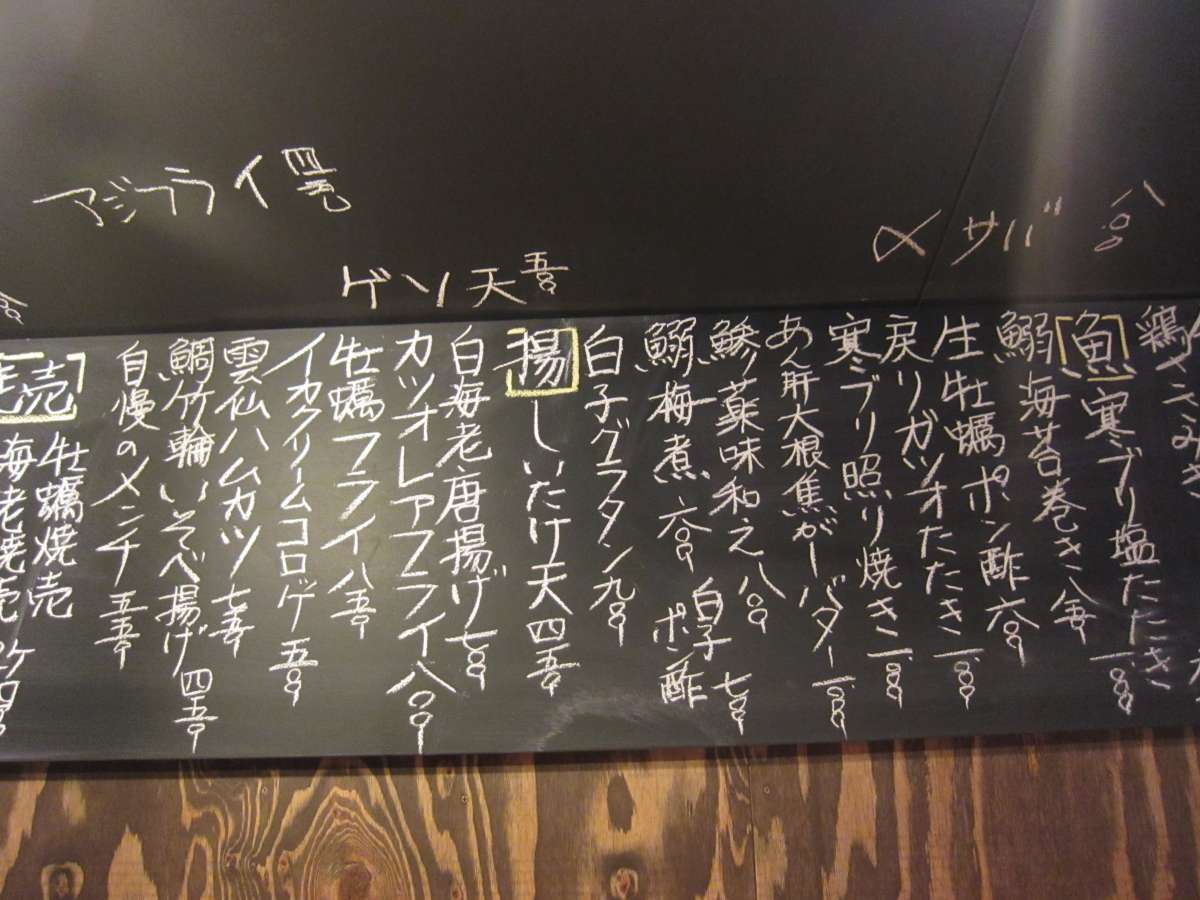 アジフライ 四五〇
ゲソ天 五〇〇
〆サバ 八〇〇
鶏ささみ
魚
寒ブリ塩たたき 一〇〇〇
鰯海苔巻き 八五〇
生牡蠣ポン酢 六〇〇
戻りガツオたたき 一〇〇〇
寒ブリ照り焼き 一〇〇〇
あん肝大根焦がーバター 一〇〇〇
鯵ッ薬味和え 八〇〇
白子 七〇〇
ポン酢
鰯梅煮 六〇〇
白子グラタン 九〇〇
揚
しいたけ天 四五〇
白海老唐揚げ 七〇〇
カツオレアフライ 八〇〇
牡蠣フライ 八五〇
イカクリームコロッケ 五〇〇
雲仙ハムカツ 七五〇
鯛竹輪いそべ揚げ 四五〇
自慢のメンチ 五五〇
売
牡蠣焼売
海老焼売